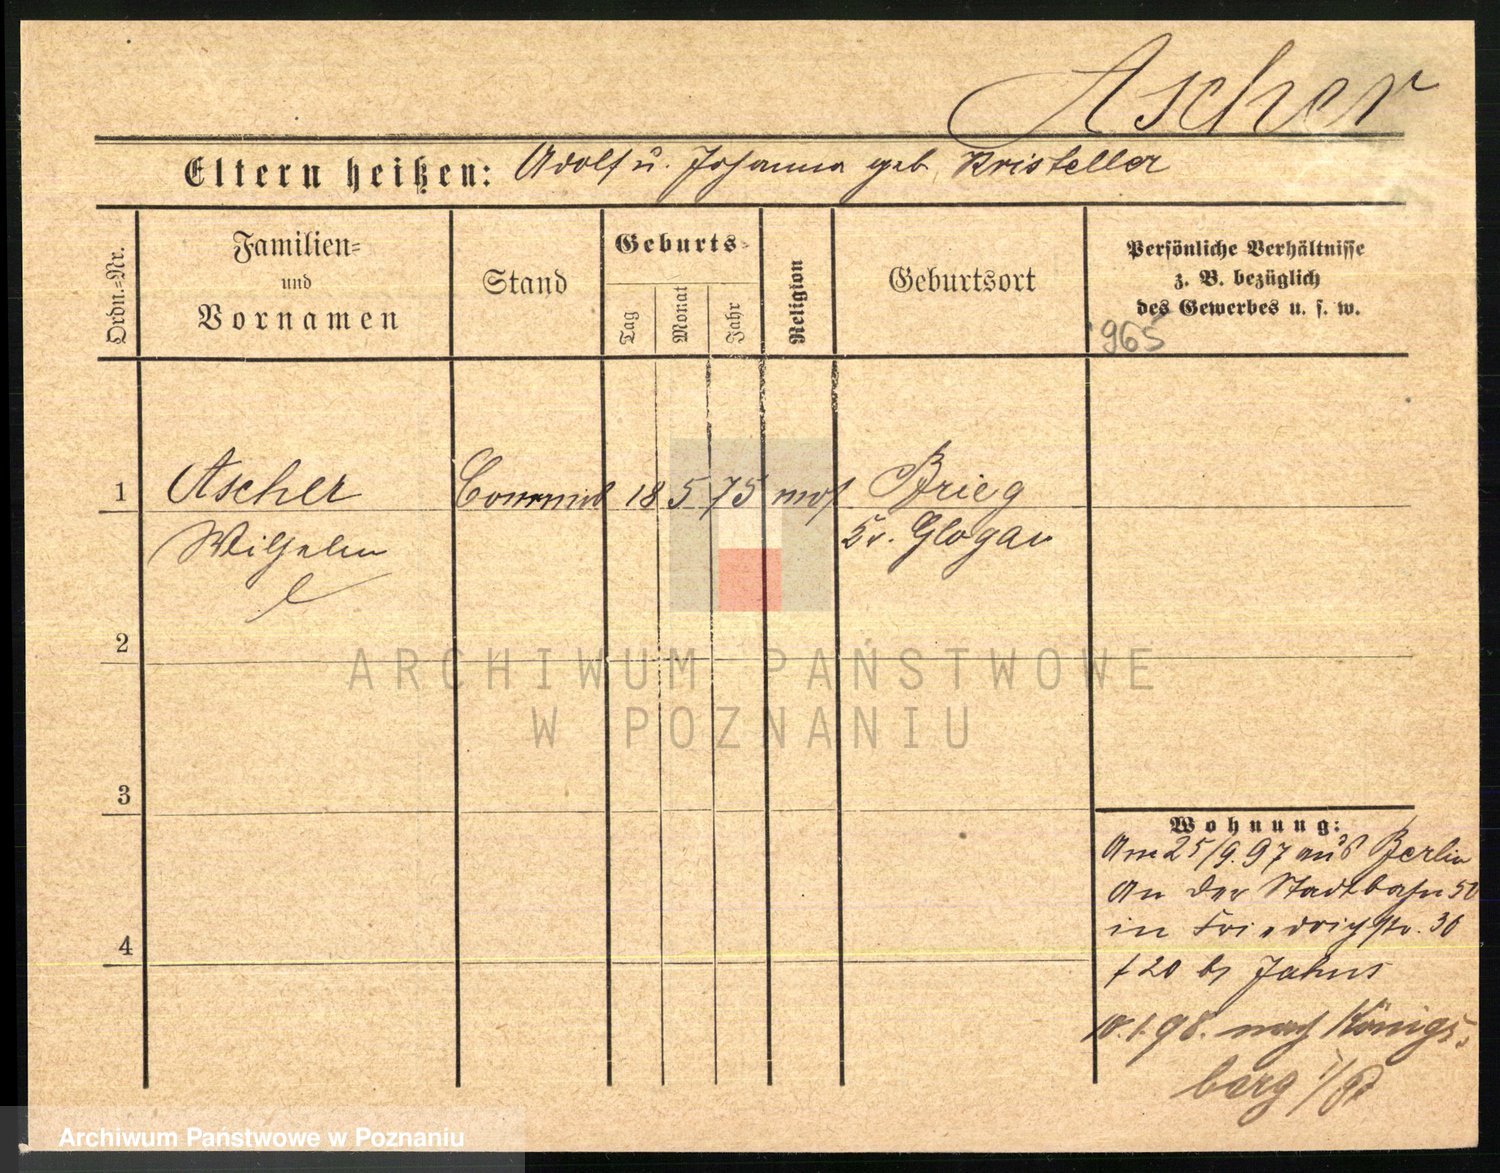 Ascher
Eltern heißen: Adolf u. Johanna geb Kristeller
Ordn.-Nr.
Familien-
und
Vornamen
Stand
Geburts-
Tag
Monat
Jahr
Religion
Geburtsort
Persönliche Verhältnisse
z. B. bezüglich
des Gewerbes u. s. w.
965
1 Ascher Commis 18 5 75 mos Brieg
Wilhelm Kr. Glogau
2
ARCHIWUM PAŃSTWOWE
W POZNANIU
3
Wohnung:
Am 25/9.97 aus Berlin
An der Stadtbahn 50
in Friedrichstr. 30
b/ Jahns
10.1.98. nach Königs-
berg i/Pr
4
Archiwum Państwowe w Poznaniu